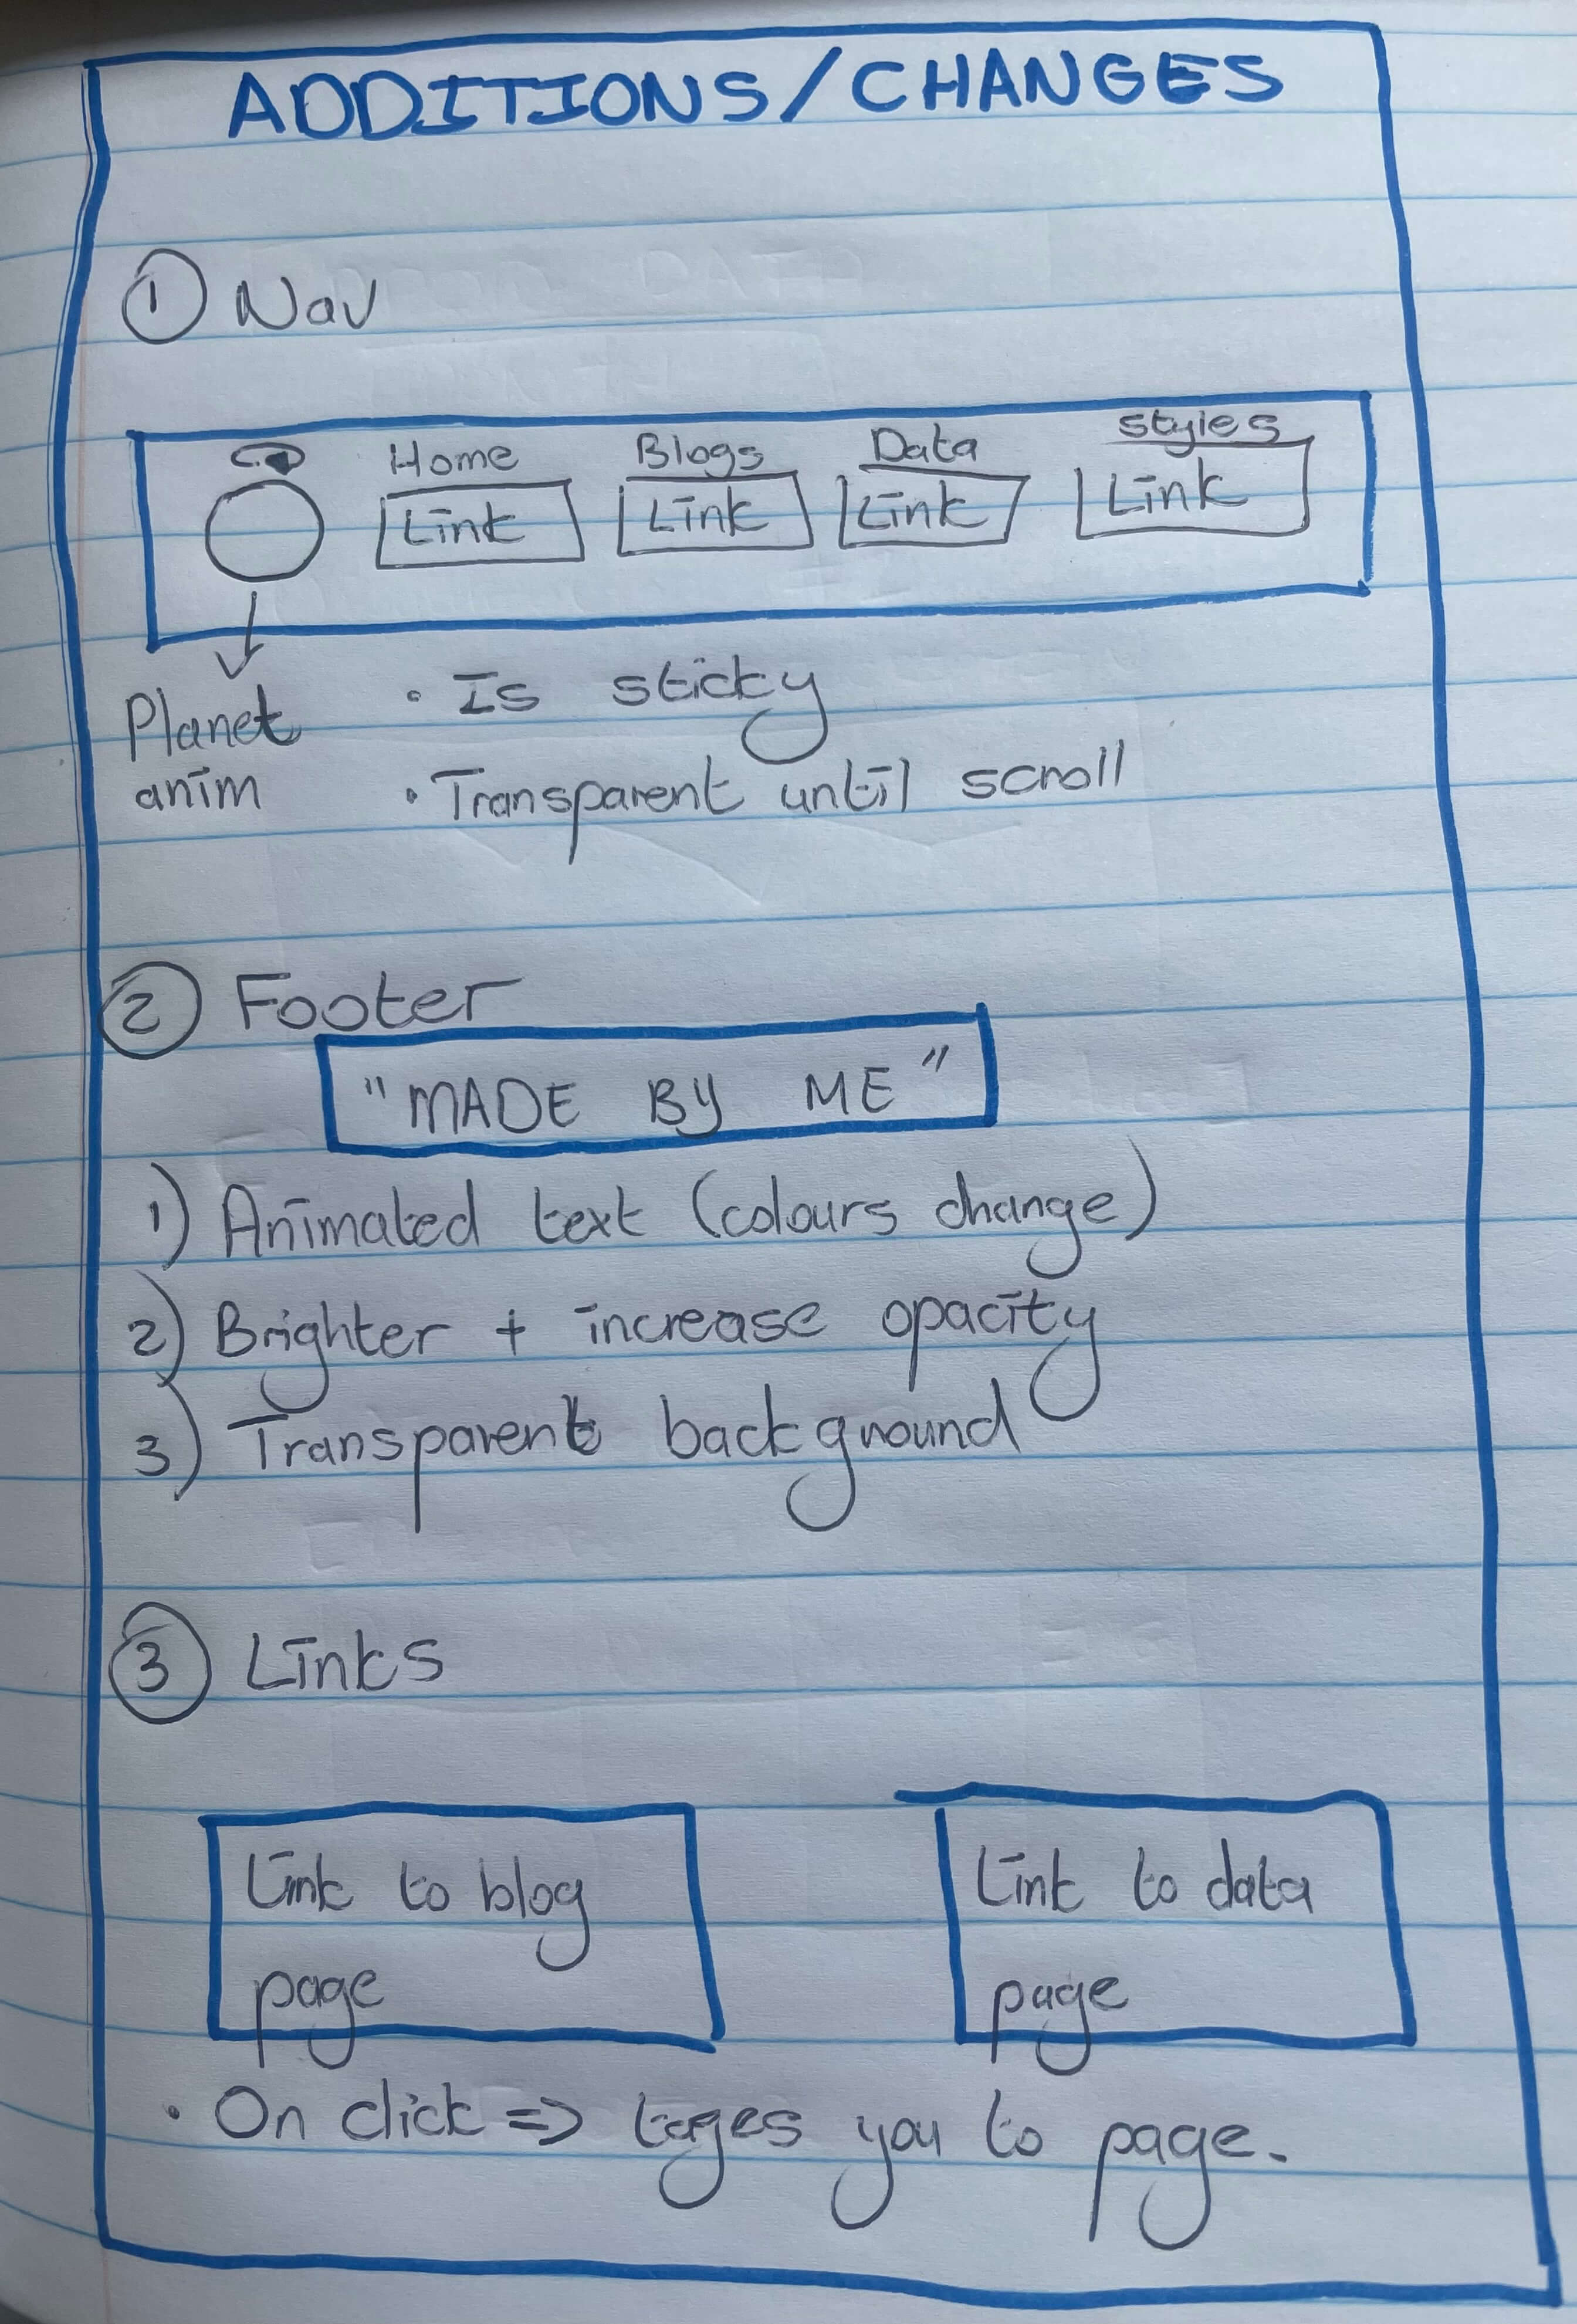 ADDITIONS/CHANGES
① Nav
Home Blogs Data styles
Link Link Link Link
Planet
anim
• Is sticky
• Transparent until scroll
② Footer
"MADE BY ME"
1) Animated text (colours change)
2) Brighter + increase opacity
3) Transparent background
③ Links
Link to blog
page
Link to data
page
• On click => tages you to page.